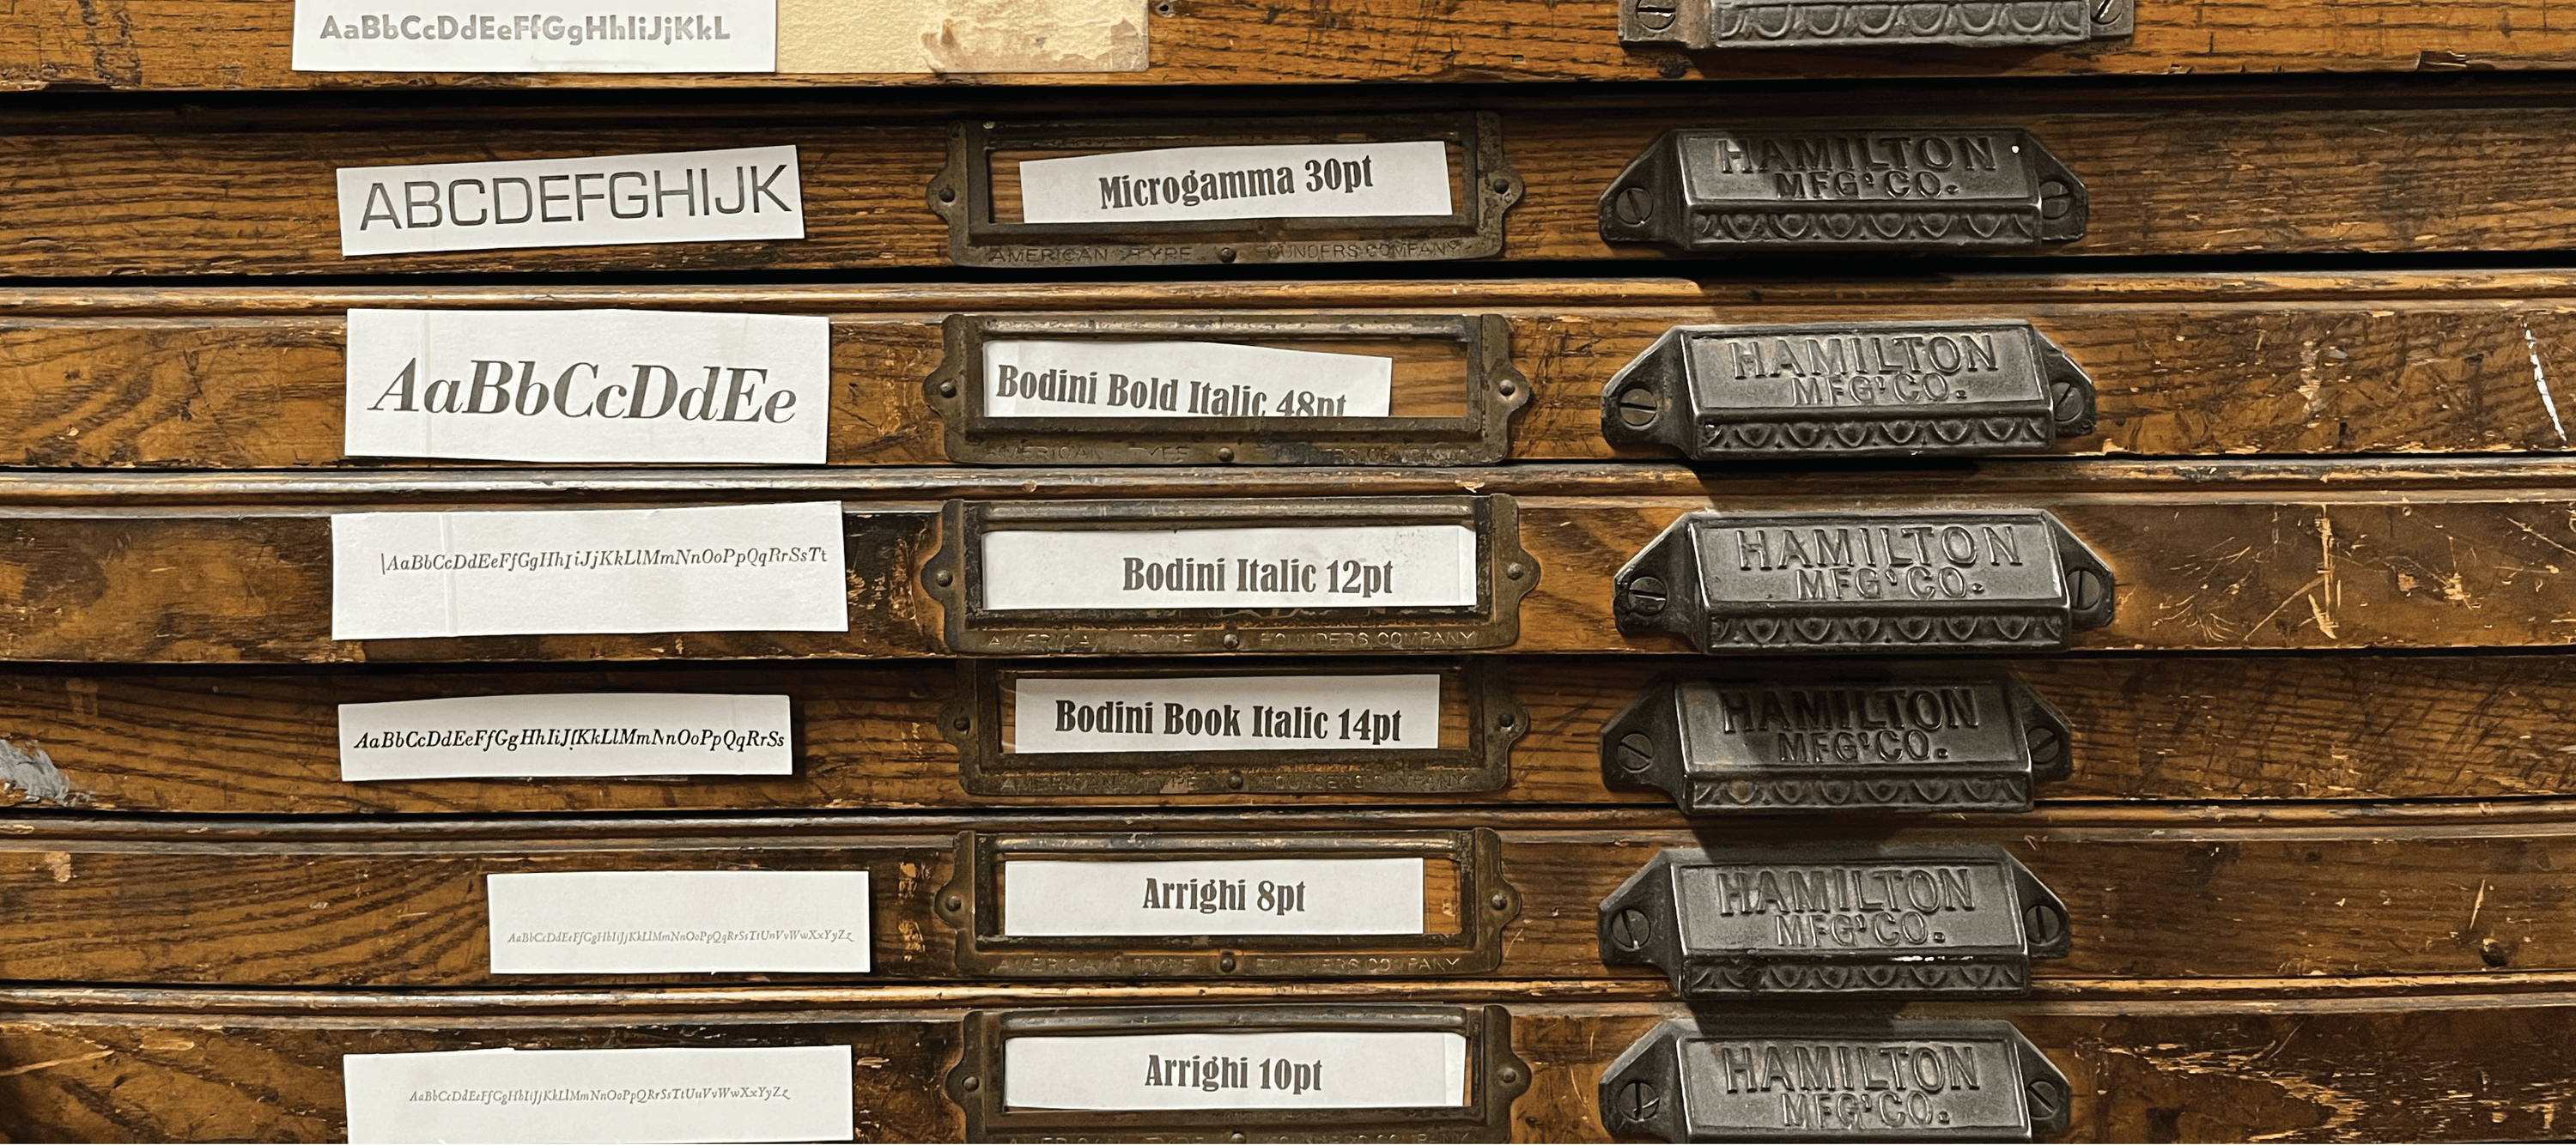 AaBbCcDdEeFfGgHhIiJjKkL
ABCDEFGHIJK
Microgamma 30pt
AMERICAN TYPE FOUNDERS COMPANY
HAMILTON
MFG'CO.
AaBbCcDdEe
Bodini Bold Italic 48pt
AMERICAN TYPE
HAMILTON
MFG'CO.
AaBbCcDdEeFfGgHhIiJjKkLlMmNnOoPpQqRrSsTt
Bodini Italic 12pt
AMERICAN TYPE FOUNDERS COMPANY
HAMILTON
MFG'CO.
AaBbCcDdEeFfGgHhIiJfKkLlMmNnOoPpQqRrSs
Bodini Book Italic 14pt
AMERICAN TYPE FOUNDERS COMPANY
HAMILTON
MFG'CO.
AaBbCcDdEeFfGgHhIiJjKkLlMmNnOoPpQqRrSsTtUnVvWwXxYyZz
Arrighi 8pt
AMERICAN TYPE FOUNDERS COMPANY
HAMILTON
MFG'CO.
AaBbCcDdEeFfGgHhIiJjKkLlMmNnOoPpQRrSsTtUuVvWwXxYyZz
Arrighi 10pt
AMERICAN TYPE FOUNDERS COMPANY
HAMILTON
MFG'CO.